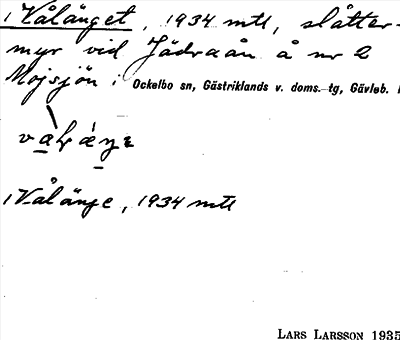 i Vålänget, 1934 mtl, slåtter-
myr vid Jädraån å nr 2
Mojsjön i Ockelbo sn, Gästriklands v. doms.-tg, Gävleb. l
i Vålänge, 1934 mtl
LARS LARSSON 1935